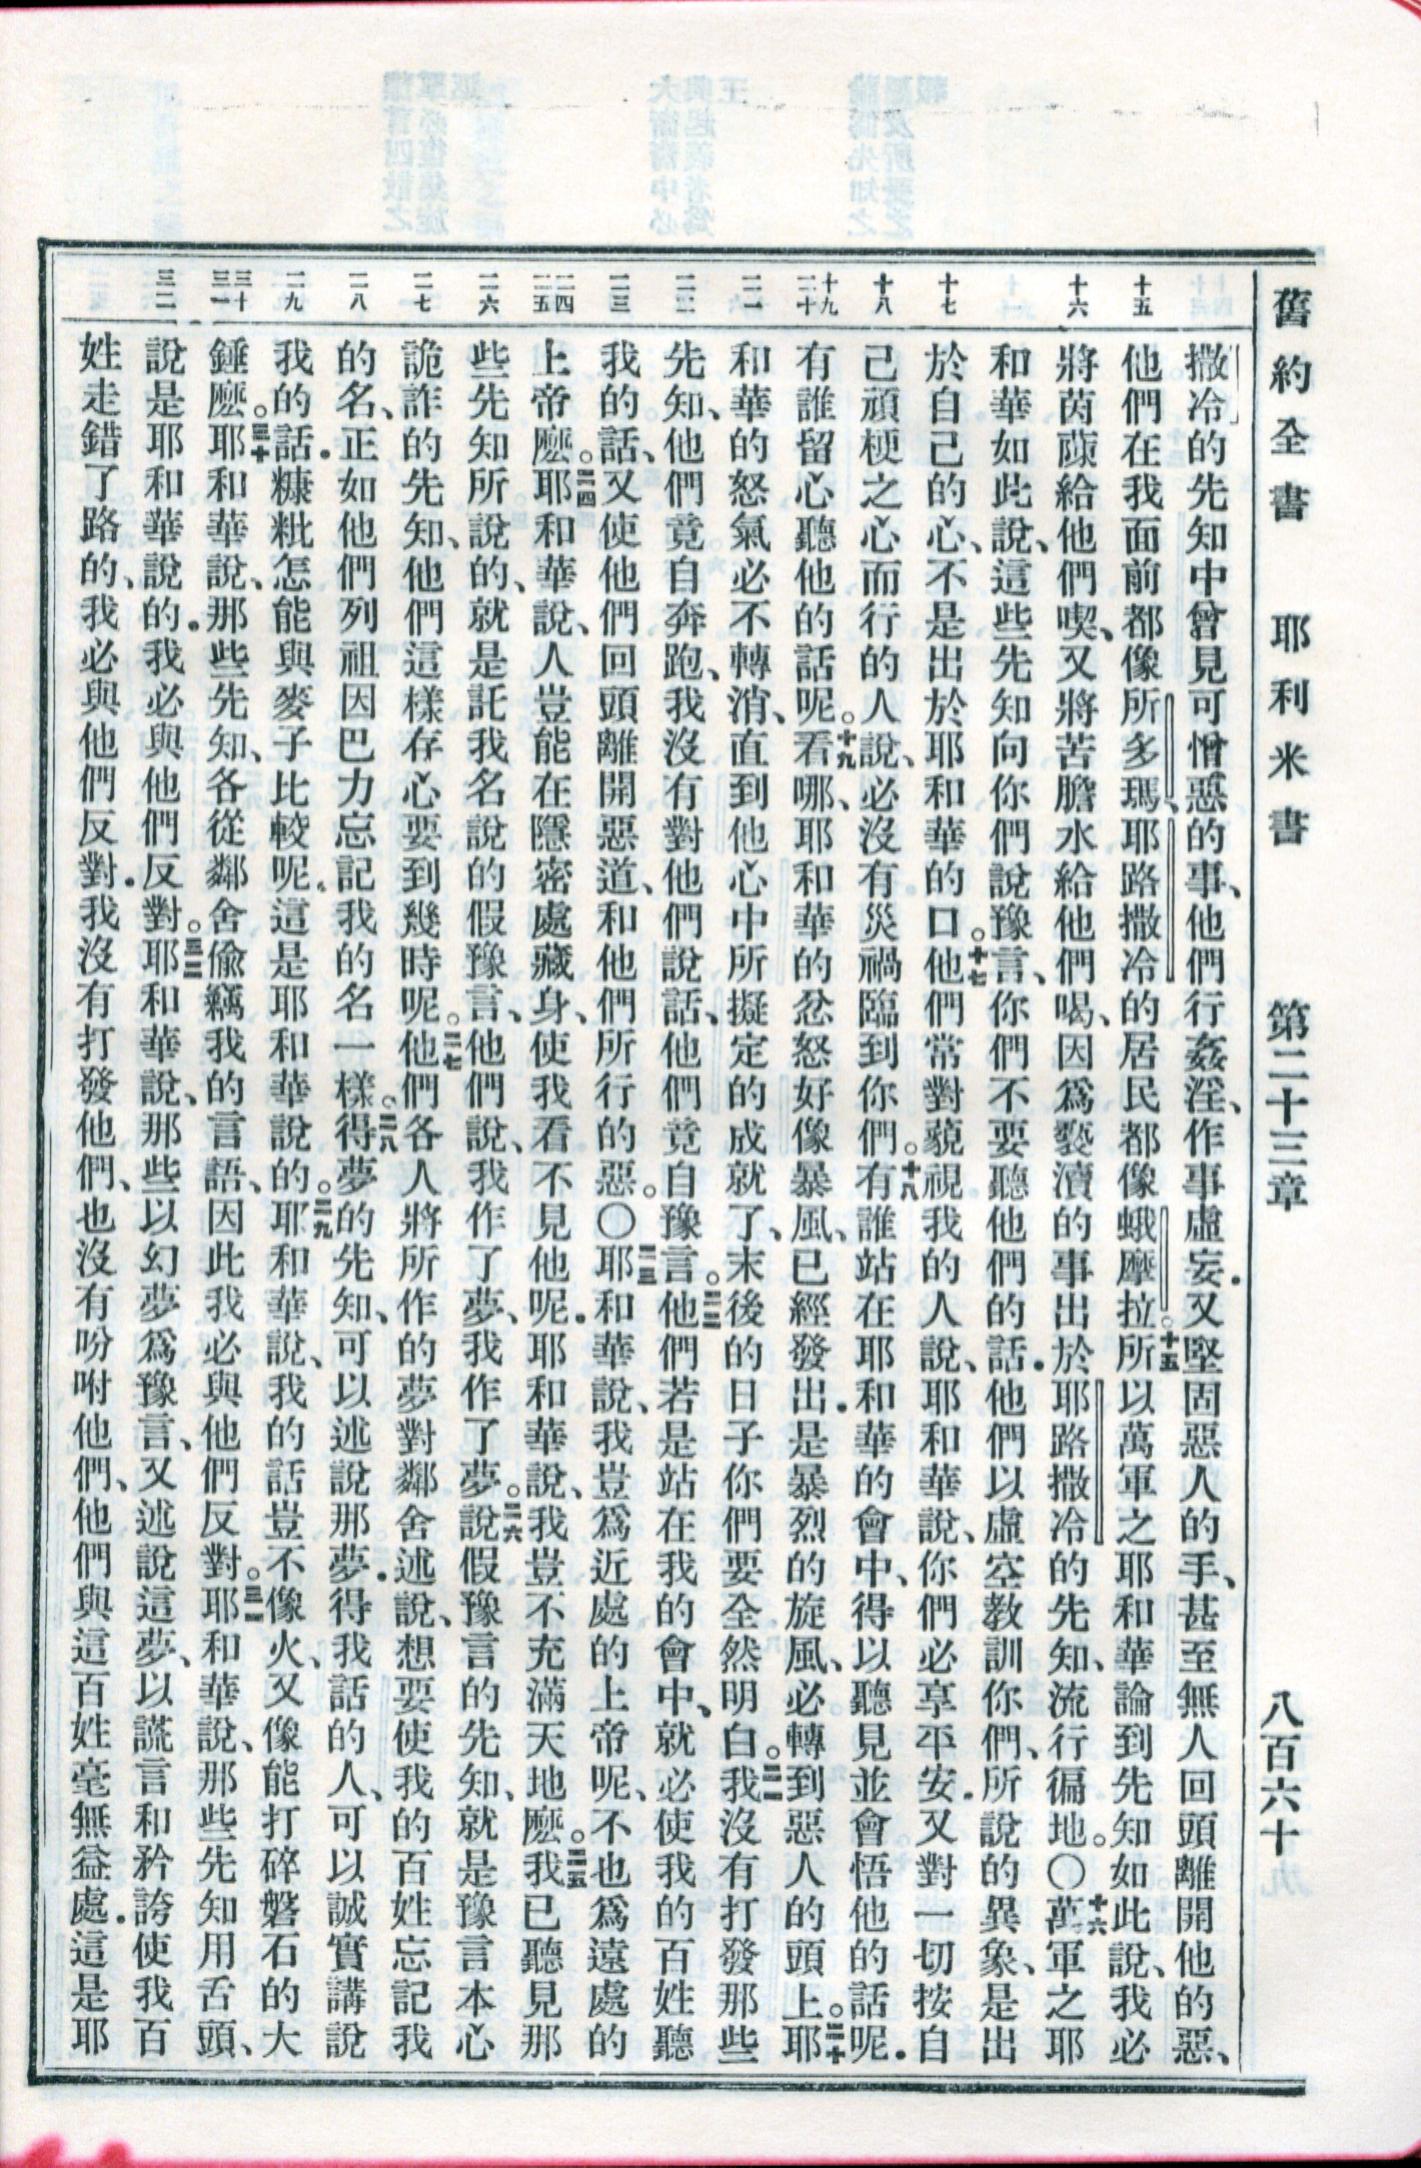 舊約全書 耶利米書 第二十三章 八百六十
十五
十六
十七
十八
十九 二十
二一
二二
二三
二四 二五
二六
二七
二八
二九
三十 三一
三二
撒冷的先知中曾見可憎惡的事、他們行姦淫、作事虛妄．又堅固惡人的手、甚至無人回頭離開他的惡、
他們在我面前都像所多瑪、耶路撒冷的居民都像蛾摩拉。十五所以萬軍之耶和華論到先知如此說、我必
將茵蔯給他們喫、又將苦膽水給他們喝、因爲褻瀆的事出於耶路撒冷的先知、流行徧地。〇十六萬軍之耶
和華如此說、這些先知向你們說豫言、你們不要聽他們的話．他們以虛空教訓你們、所說的異象、是出
於自己的心、不是出於耶和華的口。十七他們常對藐視我的人說、耶和華說、你們必享平安．又對一切按自
己頑梗之心而行的人說、必沒有災禍臨到你們。十八有誰站在耶和華的會中、得以聽見並會悟他的話呢．
有誰留心聽他的話呢。十九看哪、耶和華的忿怒好像暴風、已經發出．是暴烈的旋風、必轉到惡人的頭上。二十耶
和華的怒氣必不轉消、直到他心中所擬定的成就了、末後的日子你們要全然明白。二一我沒有打發那些
先知、他們竟自奔跑、我沒有對他們說話、他們竟自豫言。二二他們若是站在我的會中、就必使我的百姓聽
我的話、又使他們回頭離開惡道、和他們所行的惡。〇二三耶和華說、我豈爲近處的上帝呢、不也爲遠處的
上帝麼。二四耶和華說、人豈能在隱密處藏身、使我看不見他呢．耶和華說、我豈不充滿天地麼。二五我已聽見那
些先知所說的、就是託我名說的假豫言、他們說、我作了夢、我作了夢。二六說假豫言的先知、就是豫言本心
詭詐的先知、他們這樣存心要到幾時呢。二七他們各人將所作的夢對鄰舍述說、想要使我的百姓忘記我
的名、正如他們列祖因巴力忘記我的名一樣。二八得夢的先知、可以述說那夢．得我話的人、可以誠實講說
我的話．糠粃怎能與麥子比較呢．這是耶和華說的。二九耶和華說、我的話豈不像火、又像能打碎磐石的大
錘麼。三十耶和華說、那些先知、各從鄰舍偷竊我的言語、因此我必與他們反對。三一耶和華說、那些先知用舌頭、
說是耶和華說的．我必與他們反對。三二耶和華說、那些以幻夢爲豫言、又述說這夢、以謊言和矜誇使我百
姓走錯了路的、我必與他們反對．我沒有打發他們、也沒有吩咐他們、他們與這百姓毫無益處．這是耶